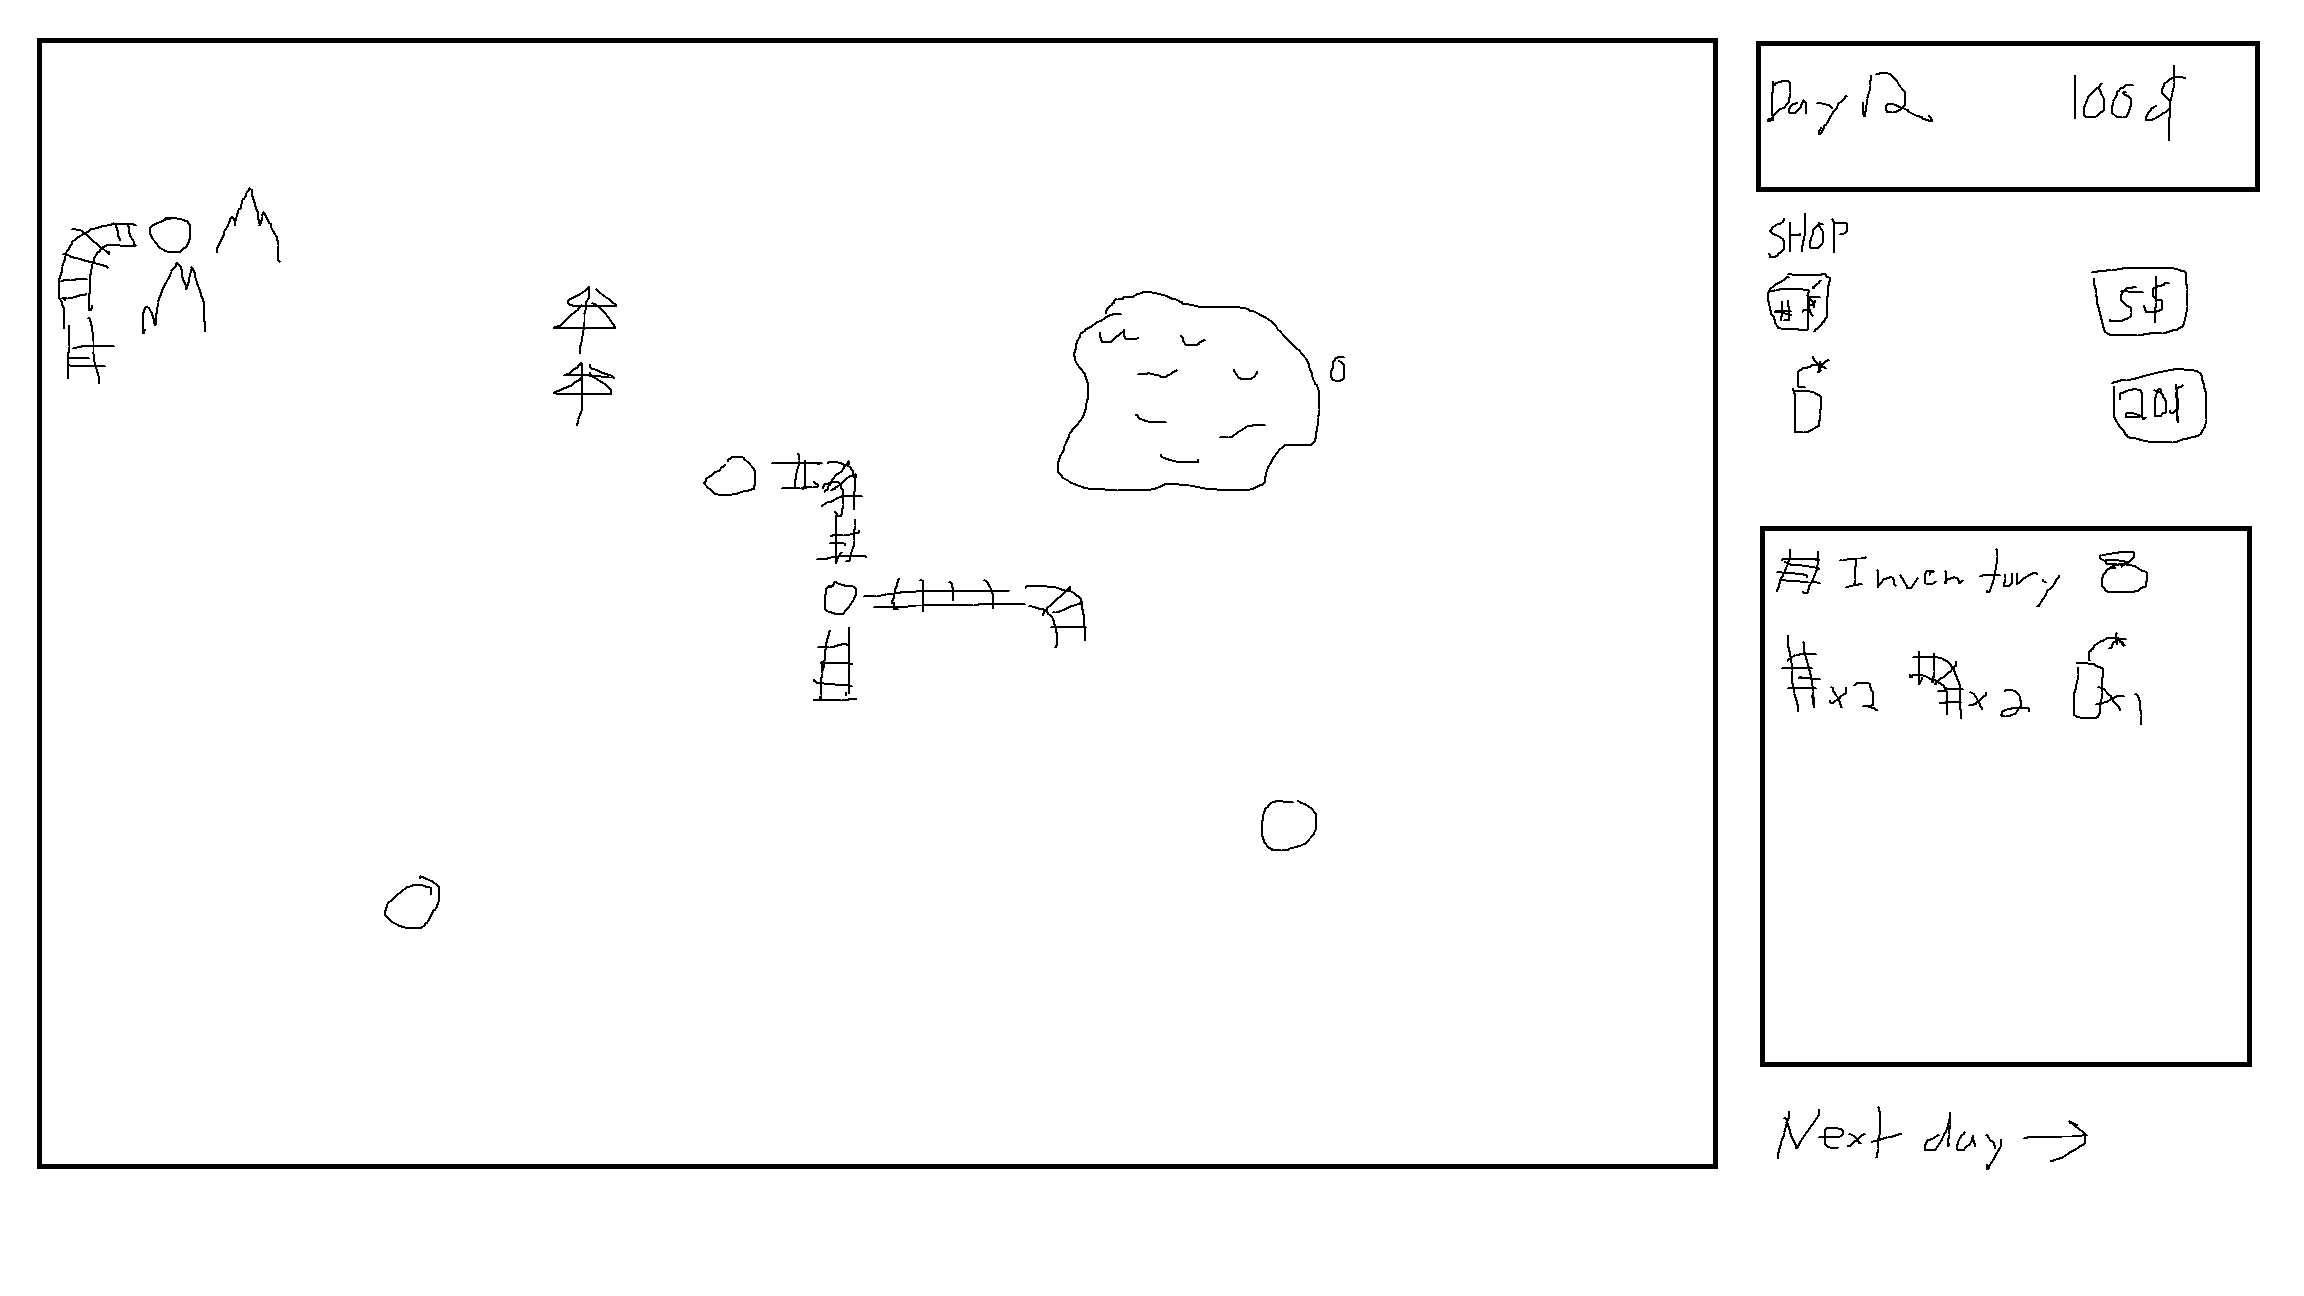 Day 12 100$
SHOP
5$
20$
# Inventory
x2 x2 x1
Next day →